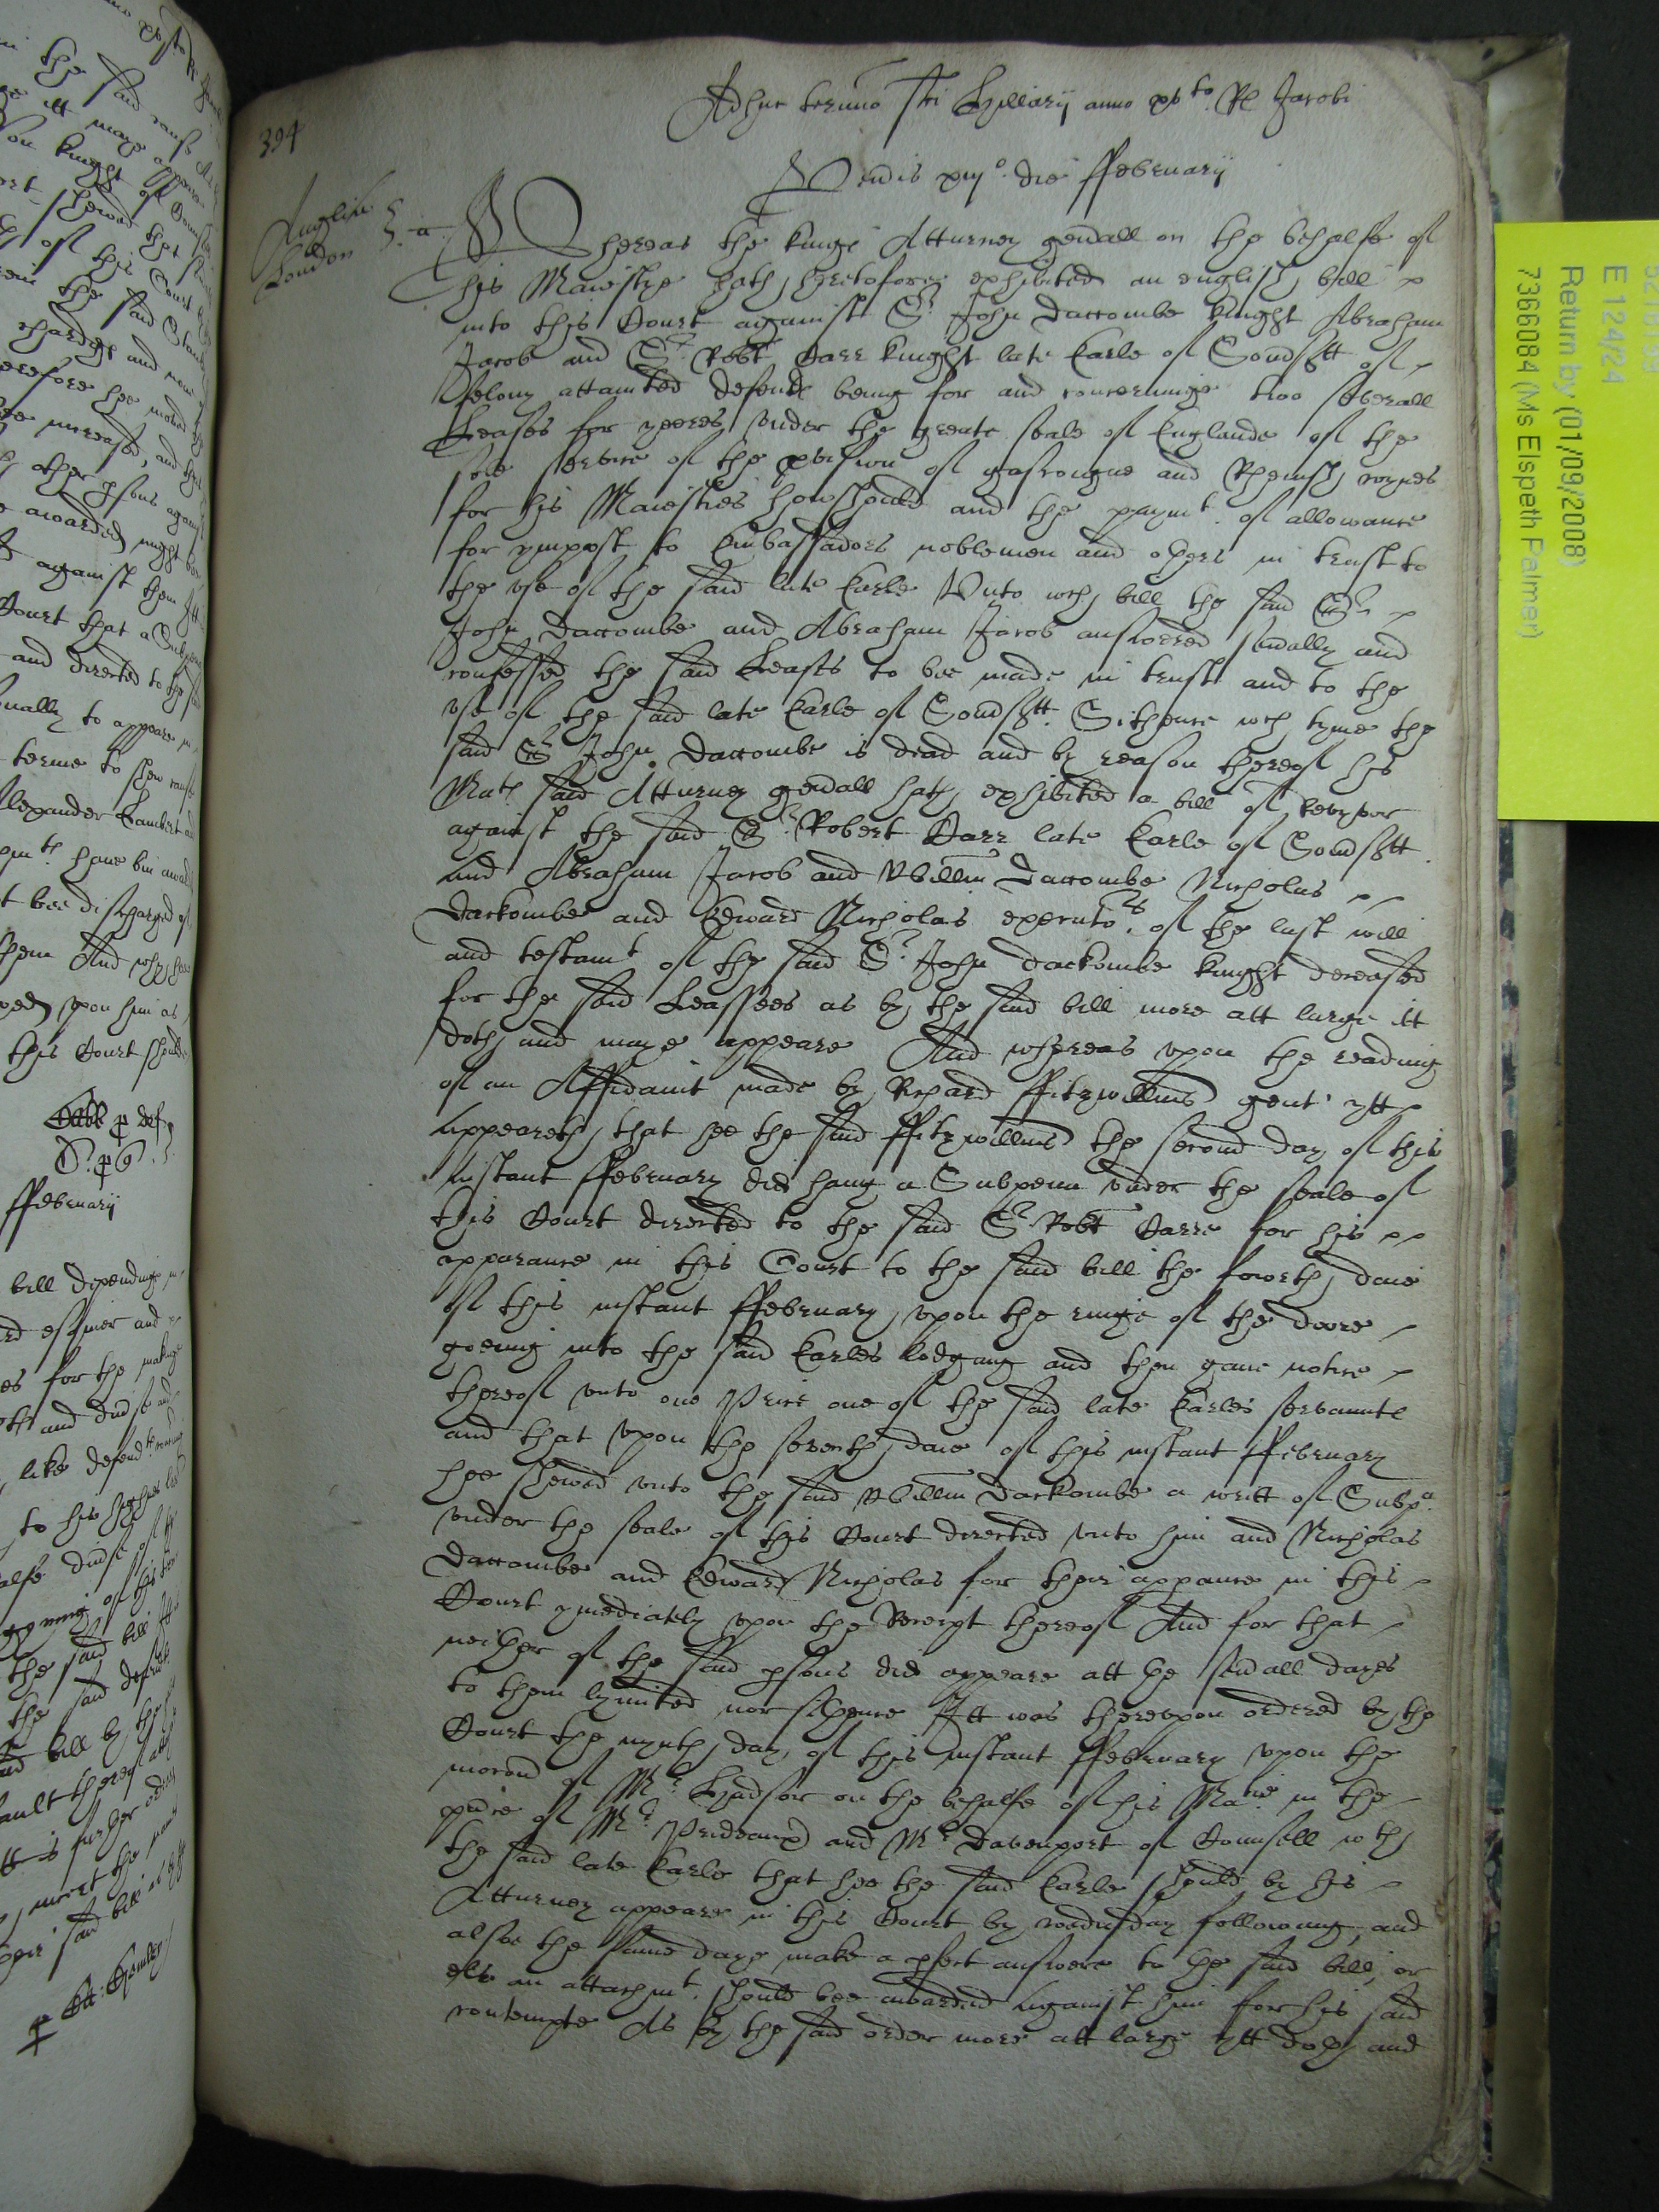 394
Adhuc termino Sci Hillarij anno xvto. Rs Jacobi
Veneris xiijo. die ffebruarij
Anglia
London
Whereas the kings Atturney genrall on the behalfe of
his Maiestye hath heretofore exhibited an english bill
into this Court against Sr. John Daccombe knight Abraham
Jacob and Sr. Robt Carr knight late Earle of Somsett of
felony attainted defendts being for and concerninge two severall
Leases for yeeres vnder the greate seale of Englande of the
sole service of the provision of gascoigne and Rhenish wynes
for his Maiesties howshould and the paymt. of allowance
for ympost to Embassadors noblemen and others in trust to
the vse of the said late Earle Vnto wch bill the said Sr.
John Daccombe and Abraham Jacob answered seuerally and
confessed the said Leases to bee made in trust and to the
vse of the said late Earle of Somsett. Sithence wch tyme the
said Sr John Daccombe is dead and by reason thereof his
Mats said Atturney genrall hath exhibited a bill of Revyvor
against the said Sr. Robert Carr late Earle of Somsett.
and Abraham Jacob and Willm Daccombe Nicholas
Dackombe and Edward Nicholas executors. of the last will
and testamt of the said Sr. John Dackombe knight deceased
for the said Leassees as by the said bill more att large itt
doth and maye appeare And whereas vpon the reading
of an Affidauit made by Richard ffitzwillms gent' ytt
Appeareth that hee the said ffitzwillms the second day of this
instant ffebruary did hang a Subpena vnder the seale of
this Court directed to the said Sr Robt Carre for his
apparance in this Court to the said bill the fowrth daie
of this instant ffebruary vpon the ringe of the doore
goeing into the said Earles Lodgang and then gaue notice
thereof vnto one Price one of the said late Earles servaunts
and that vpon the seventh daie of this instant ffebruary
hee shewed vnto the said Willm Dackombe a writt of Subpa.
vnder the seale of this Court directed vnto him and Nicholas
Daccombe and Edward Nicholas for their appance in this
Court ymediately vpon the Receipt thereof And for that
neither of the said psons did appeare att the seuall dayes
to them lymitted nor sithence Itt was therevpon ordered by the
Court the nynth day of this instant ffebruary vpon the
mocon of Mr. Hudson on the behalfe of his Matie in the
pnce of Mr. Prideaux and Mr. Davenport of Councell wth
the said late Earle that hee the said Earle should by his
Atturney appeare in this Court by wednsday following, and
alsoe the same daye make a pfect answere to the said bill, or
els an attachmt. should bee awarded against him for his said
contempte As by the said order more att large ytt doth and
ffebruarij
bill depending in
es for the makinge
like defendts
this Court should
Return by (01/09/2008)
E 124/24
7366084 (Ms Elspeth Palmer)